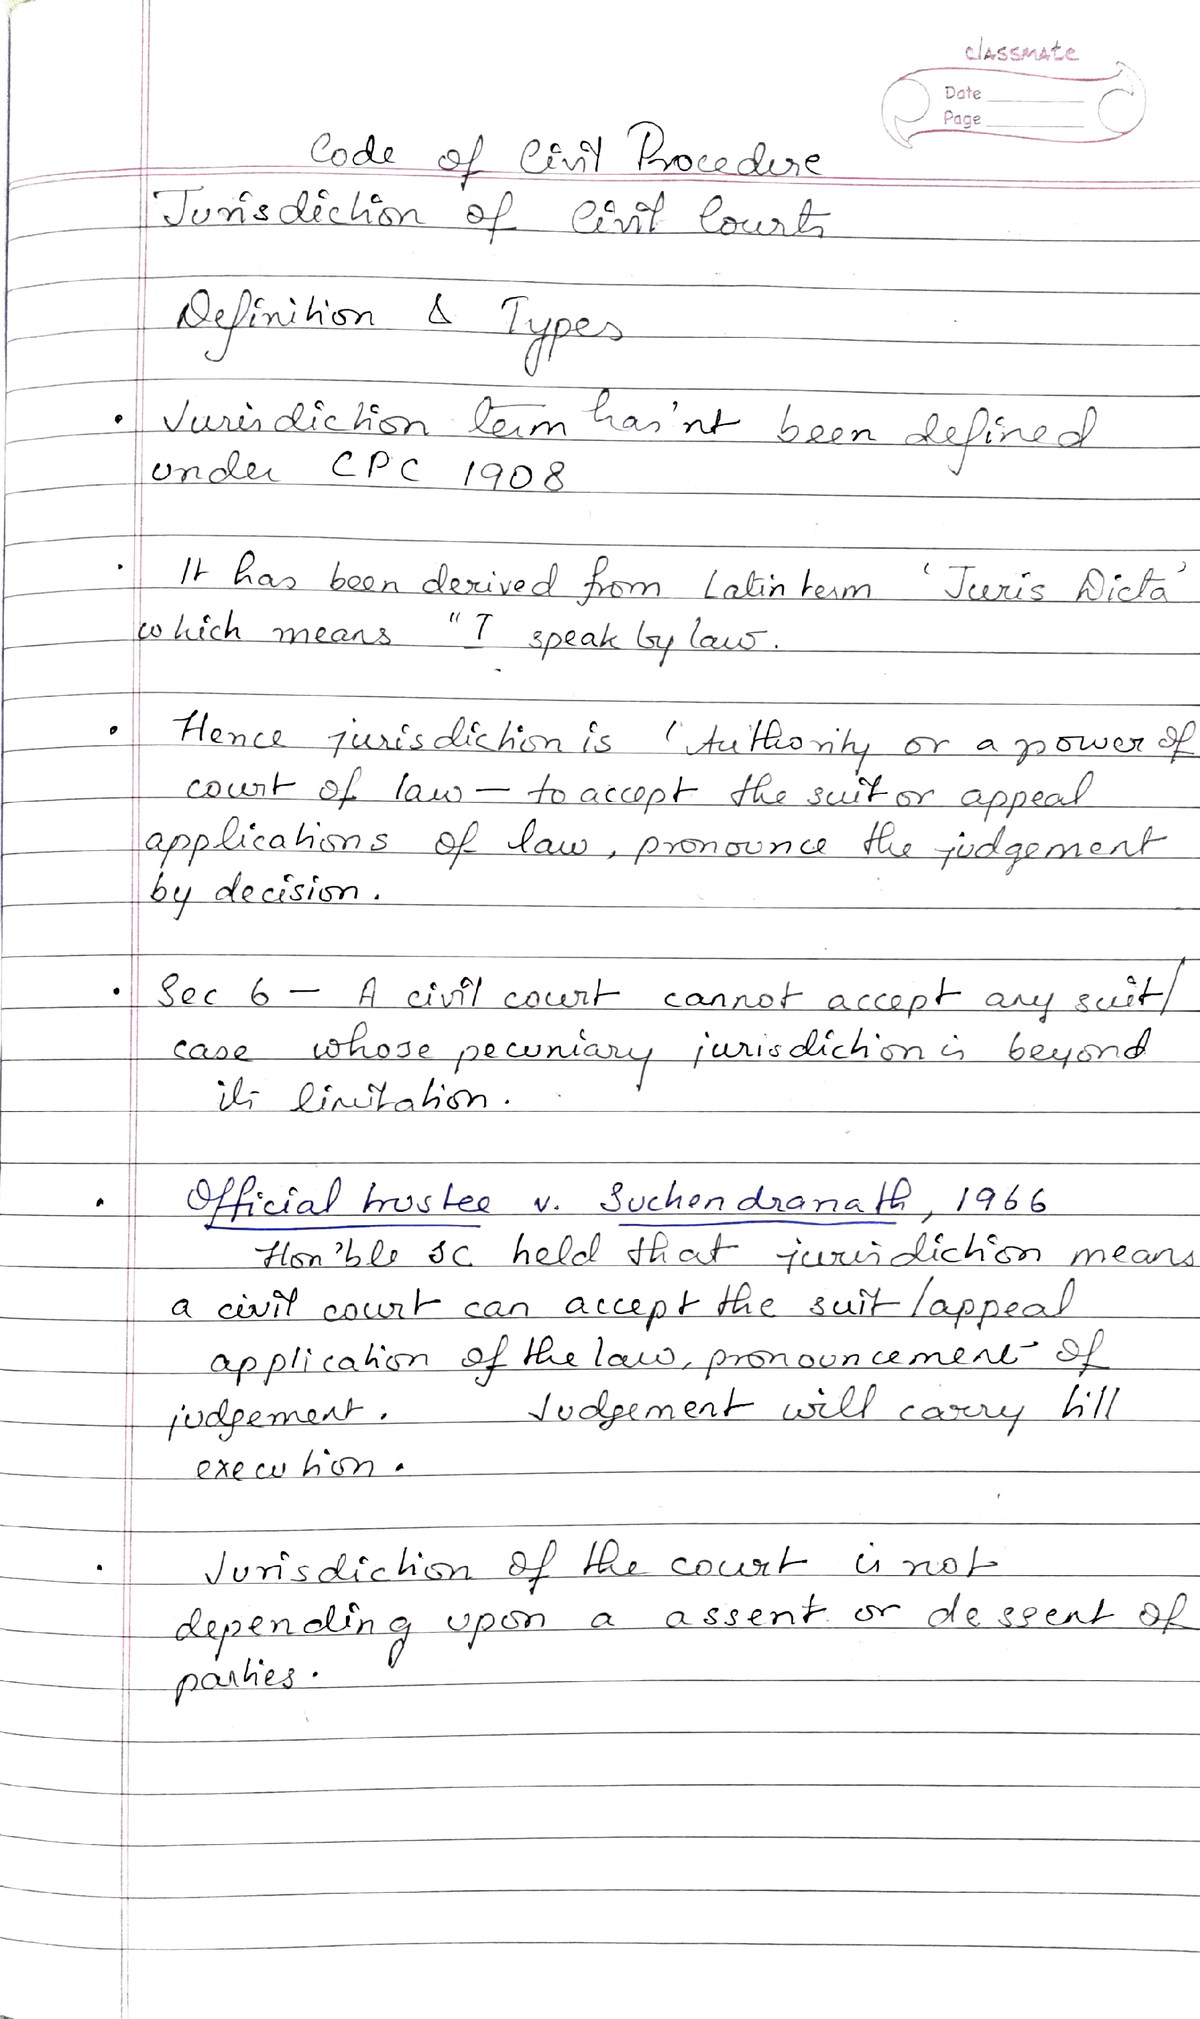 classmate
Date
Page
Code of Civil Procedure
Jurisdiction of Civil Courts
Definition & Types
• Jurisdiction term has'nt been defined
under CPC 1908
• It has been derived from Latin term 'Juris Dicta'
which means "I speak by law.
• Hence jurisdiction is 'Authority or a power of
court of law — to accept the suit or appeal
applications of law, pronounce the judgement
by decision.
• Sec 6 — A civil court cannot accept any suit/
case whose pecuniary jurisdiction is beyond
its limitation.
• Official trustee v. Suchendranath, 1966
Hon'ble SC held that jurisdiction means
a civil court can accept the suit/appeal
application of the law, pronouncement of
judgement. Judgement will carry till
execution.
• Jurisdiction of the court is not
depending upon a assent or dessent of
parties.